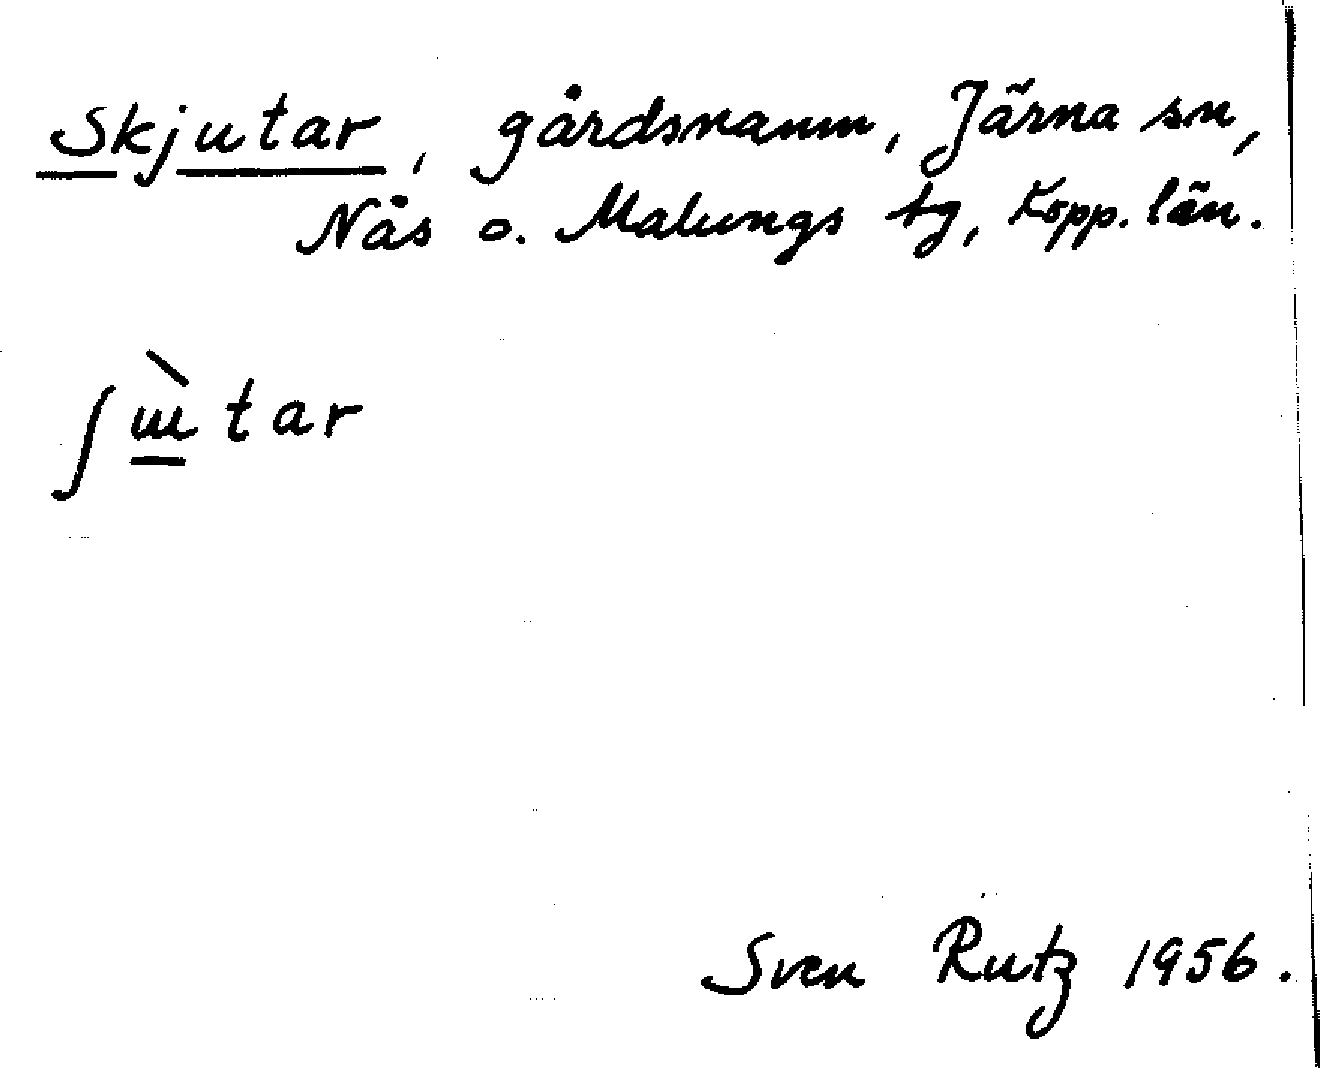 Skjutar, gårdsnamn, Järna sn,
Nås o. Malungs tg, Kopp. län.
ʃɯ̲̀tar
Sven Rutz 1956.